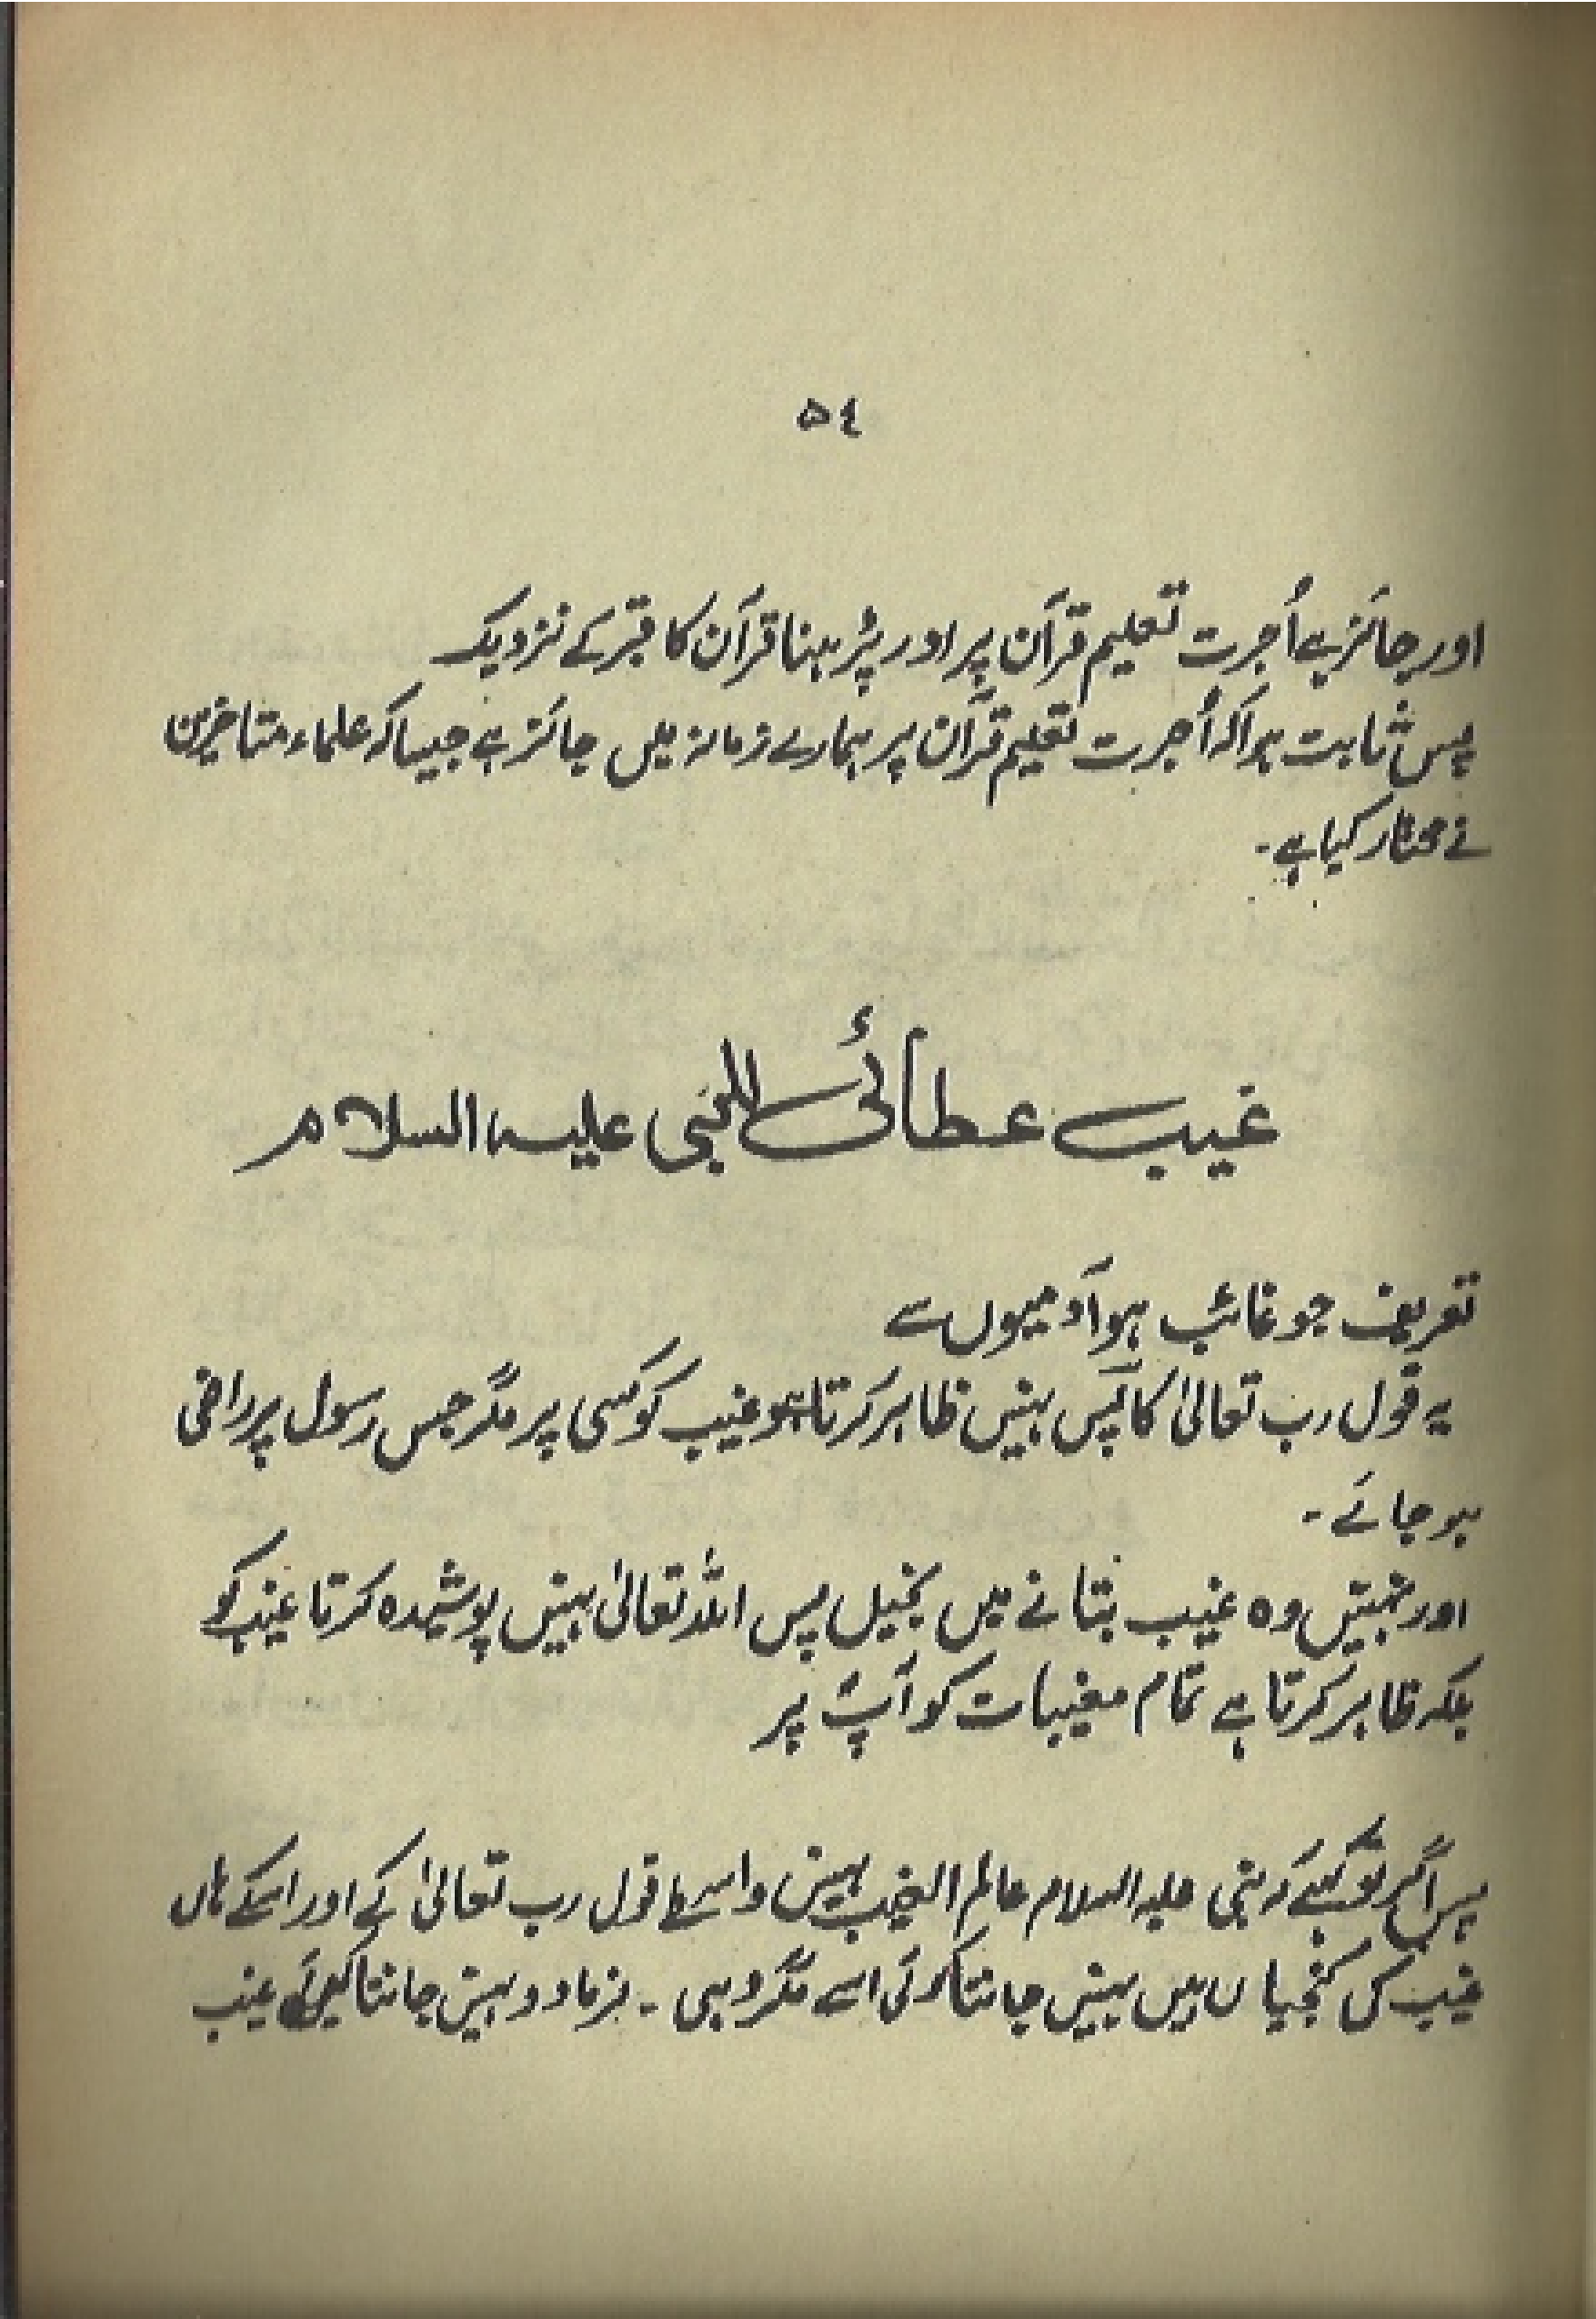 ٥٤
اور جائز ہے اُجرت تعلیم قرآن پر اور پڑہنا قرآن کا قبر کے نزدیک
پس ثابت ہوا کہ اُجرت تعلیم قرآن پر ہمارے زمانہ میں جائز ہے جیسا کہ علماء متاخرین
نے مختار کیا ہے۔
غیب عطائی للنبی علیہ السلام
تعریف جو غائب ہو آدمیوں سے
یہ قول رب تعالیٰ کا پس نہیں ظاہر کرتا ہو غیب کو کسی پر مگر جس رسول پر راضی
ہو جائے۔
اور نہیں وہ غیب بتانے میں بخیل پس اللہ تعالیٰ نہیں پوشیدہ کرتا غیب کو
بلکہ ظاہر کرتا ہے تمام مغیبات کو آپؐ پر
پس اگر تو کہے کہ نبی علیہ السلام عالم الغیب نہیں واسطے قول رب تعالیٰ کے اور اسکے ہاں
غیب کی کنجیاں ہیں نہیں جانتا کوئی اسے مگر وہی ۔ فرما دو نہیں جانتا کوئی غیب